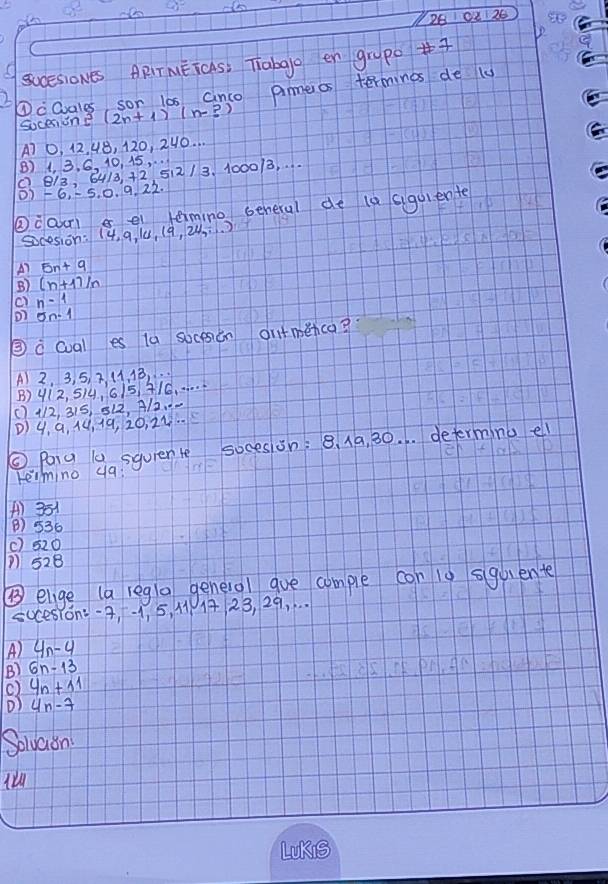 26 02 26
SUCESIONES ARITMÉTICAS: Trabajo en grupo #7
① ¿Cuales son los cinco primeros terminos de la
sucesión? (2n+1) (n-2)
A) 0, 12, 48, 120, 240...
B) 1, 3, 6, 10, 15, ...
C) 8/3, 64/3, +2, 512/3, 1000/3, ...
D) -6, -5, 0, 9, 22.
② ¿Cual es el término general de la siguiente
sucesión: (4, 9, 14, 19, 24, ...)
A) 5n+9
B) (n+1)/n
C) n-1
D) 5n-1
③ ¿Cual es la sucesión aritmética?
A) 2, 3, 5, 7, 11, 13, ...
B) 4/2, 5/4, 6/5, 7/6, ...
C) 1/2, 3/5, 5/2, 7/2, ...
D) 4, 9, 14, 19, 20, 21, ...
⑥ Para la siguiente sucesión: 8, 19, 30... determina el
término 49:
A) 351
B) 536
C) 520
D) 528
⑬ elige la regla general que cumple con la siguiente
sucesión: -7, -1, 5, 11, 17, 23, 29, ...
A) 4n-4
B) 6n-13
C) 4n+11
D) 4n-7
Solución:
LUKIS